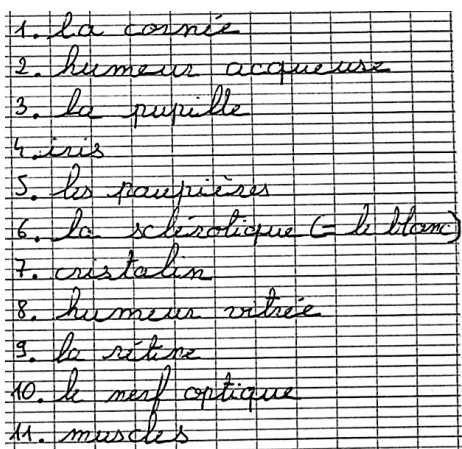 1. la cornée
2. humeur acqueuse
3. la pupille
4. iris
5. les paupières
6. la sclérotique (= le blanc)
7. cristalin
8. humeur vitrée
9. la rétine
10. le nerf optique
11. muscles